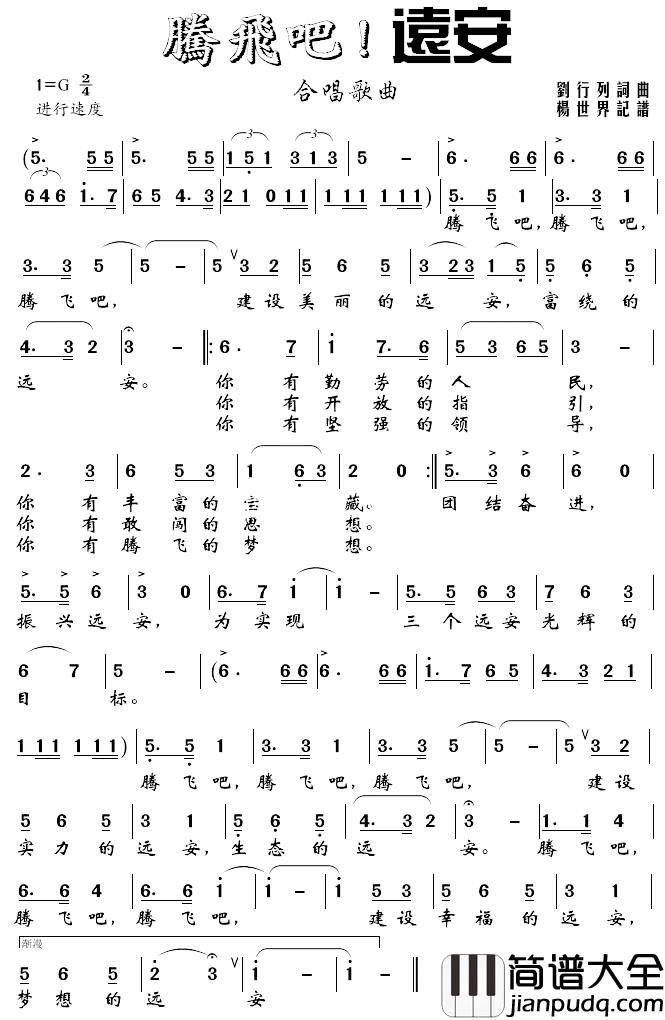 騰飛吧！遠安
1=G 2/4
进行速度
合唱歌曲
劉行列詞曲
楊世界記譜
(5. 55 | 5. 55 | 151 313 | 5 - | 6. 66 | 6. 66 |
646 1. 7 | 65 4. 3 | 21 011 | 111 111) | 5. 5 1 | 3. 3 1 |
腾飞吧，腾飞吧，
3. 3 5 | 5 - | 5 ∨ 3 2 | 5 6 5 | 3 23 1 5 | 5 6 5 |
腾飞吧，建设美丽的远安，富绕的
4. 3 2 | 3 - ‖: 6. 7 | 1 7. 6 | 5 3 6 5 | 3 - |
远安。你有勤劳的人民，
你有开放的指引，
你有坚强的领导，
2. 3 | 6 5 3 | 1 6 3 | 2 0 :‖ 5. 3 6 | 6 0 |
你有丰富的宝藏。团结奋进，
你有敢闯的思想。
你有腾飞的梦想。
5. 5 6 | 3 0 | 6. 7 1 | 1 - | 6. 5 6 3 | 7 6 3 |
振兴远安，为实现三个远安光辉的
6 7 | 5 - | (6. 66 | 6. 66 | 1. 7 65 | 4. 3 21 |
目标。
111 111) | 5. 5 1 | 3. 3 1 | 3. 3 5 | 5 - | 5 ∨ 3 2 |
腾飞吧，腾飞吧，腾飞吧，建设
5 6 5 | 3 1 | 5 6 5 | 4. 3 2 | 3 - | 1. 1 4 |
实力的远安，生态的远安。腾飞吧，
6. 6 4 | 6. 6 1 | 1 - | 1 5 3 | 5 6 5 | 3 1 |
腾飞吧，腾飞吧，建设幸福的远安，
渐漫
5 6 5 | 2 3 ∨ | 1 - | 1 - ‖
梦想的远安
简谱大全
jianpudq.com